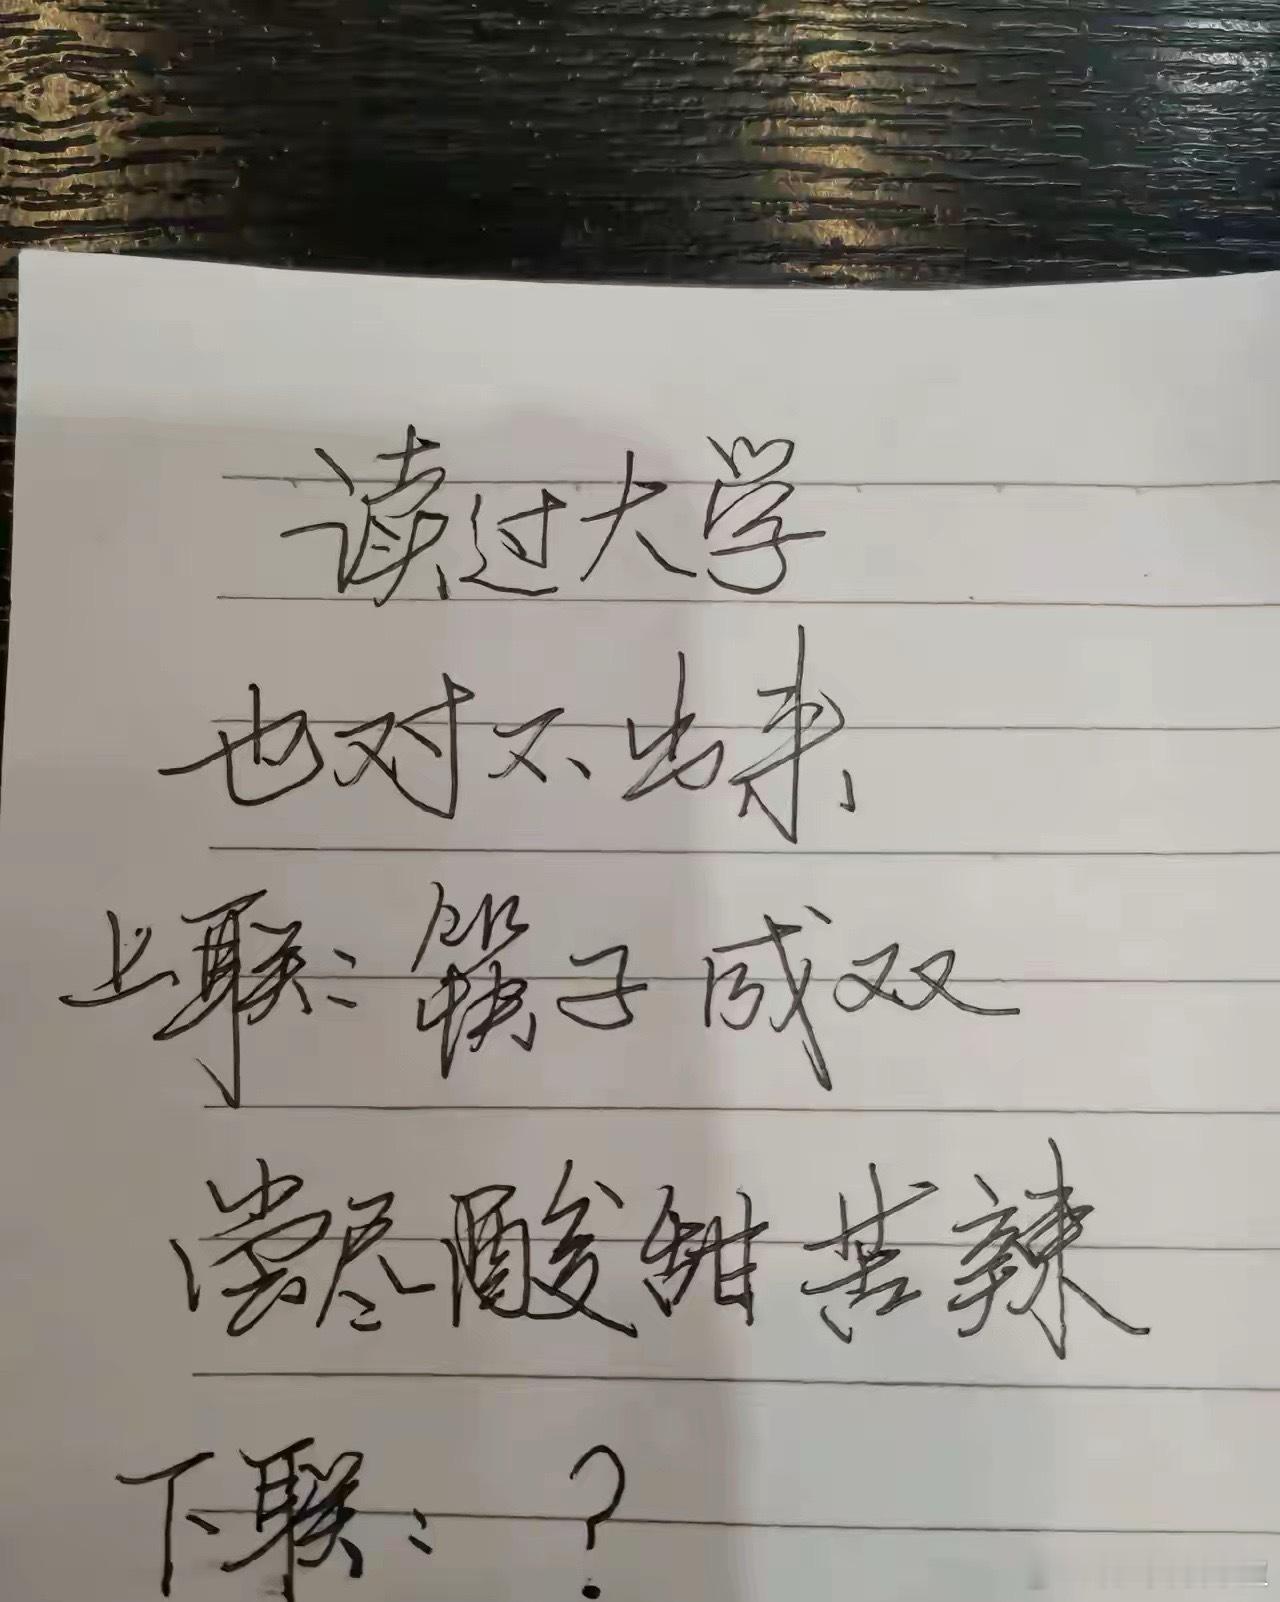 读过大学
也对不出来
上联:筷子成双
尝尽酸甜苦辣
下联:?